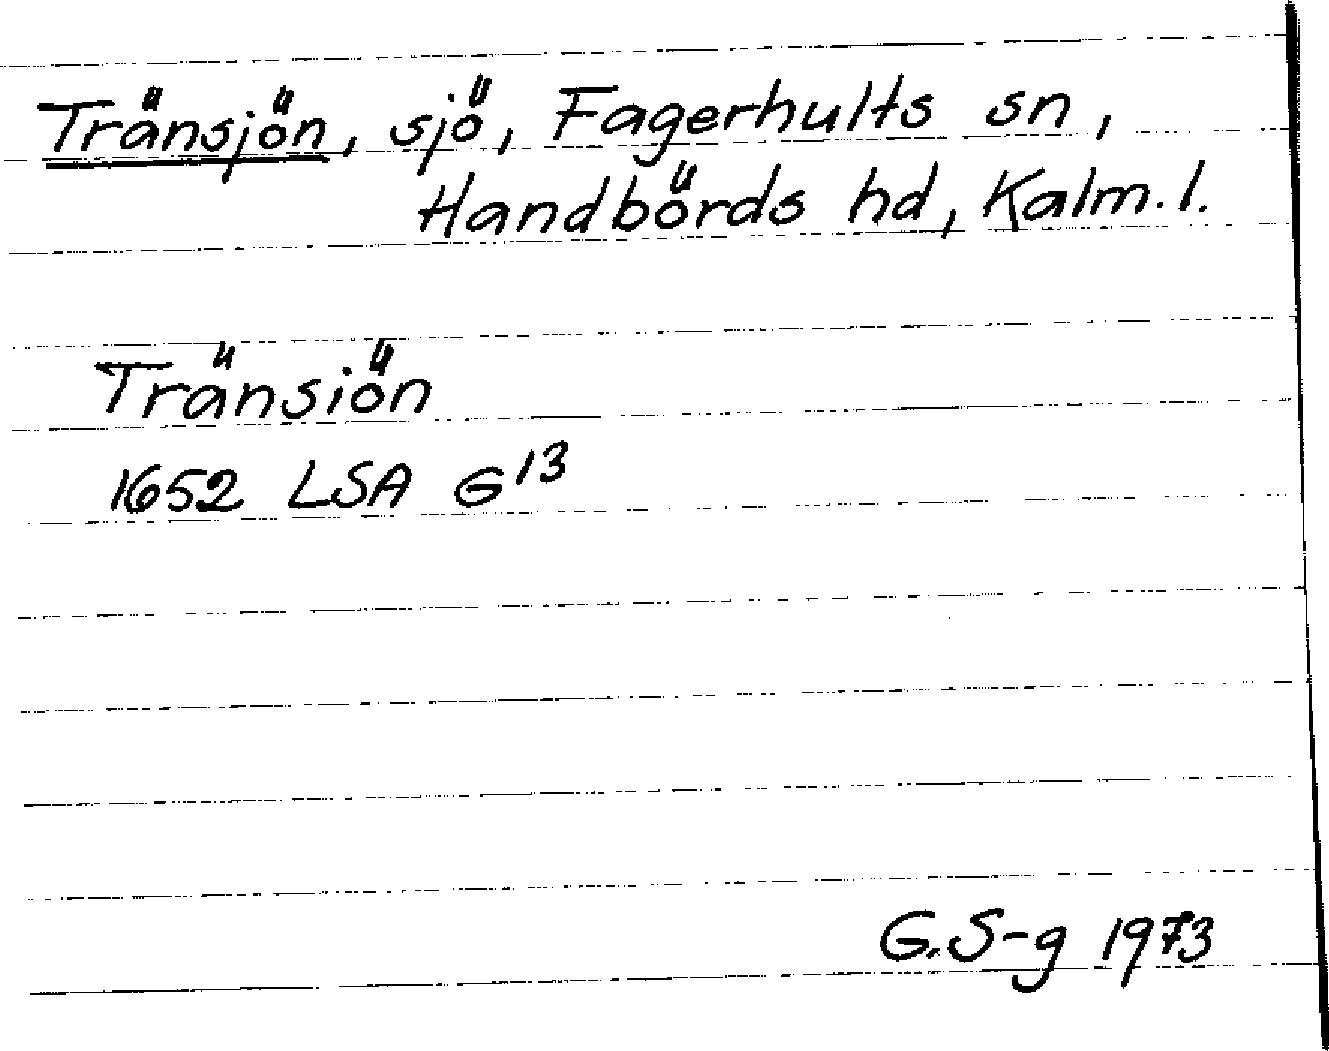 Tränsjön, sjö, Fagerhults sn,
Handbörds hd, Kalm. l.
Tränsiön
1652 LSA G13
G. S-g 1973